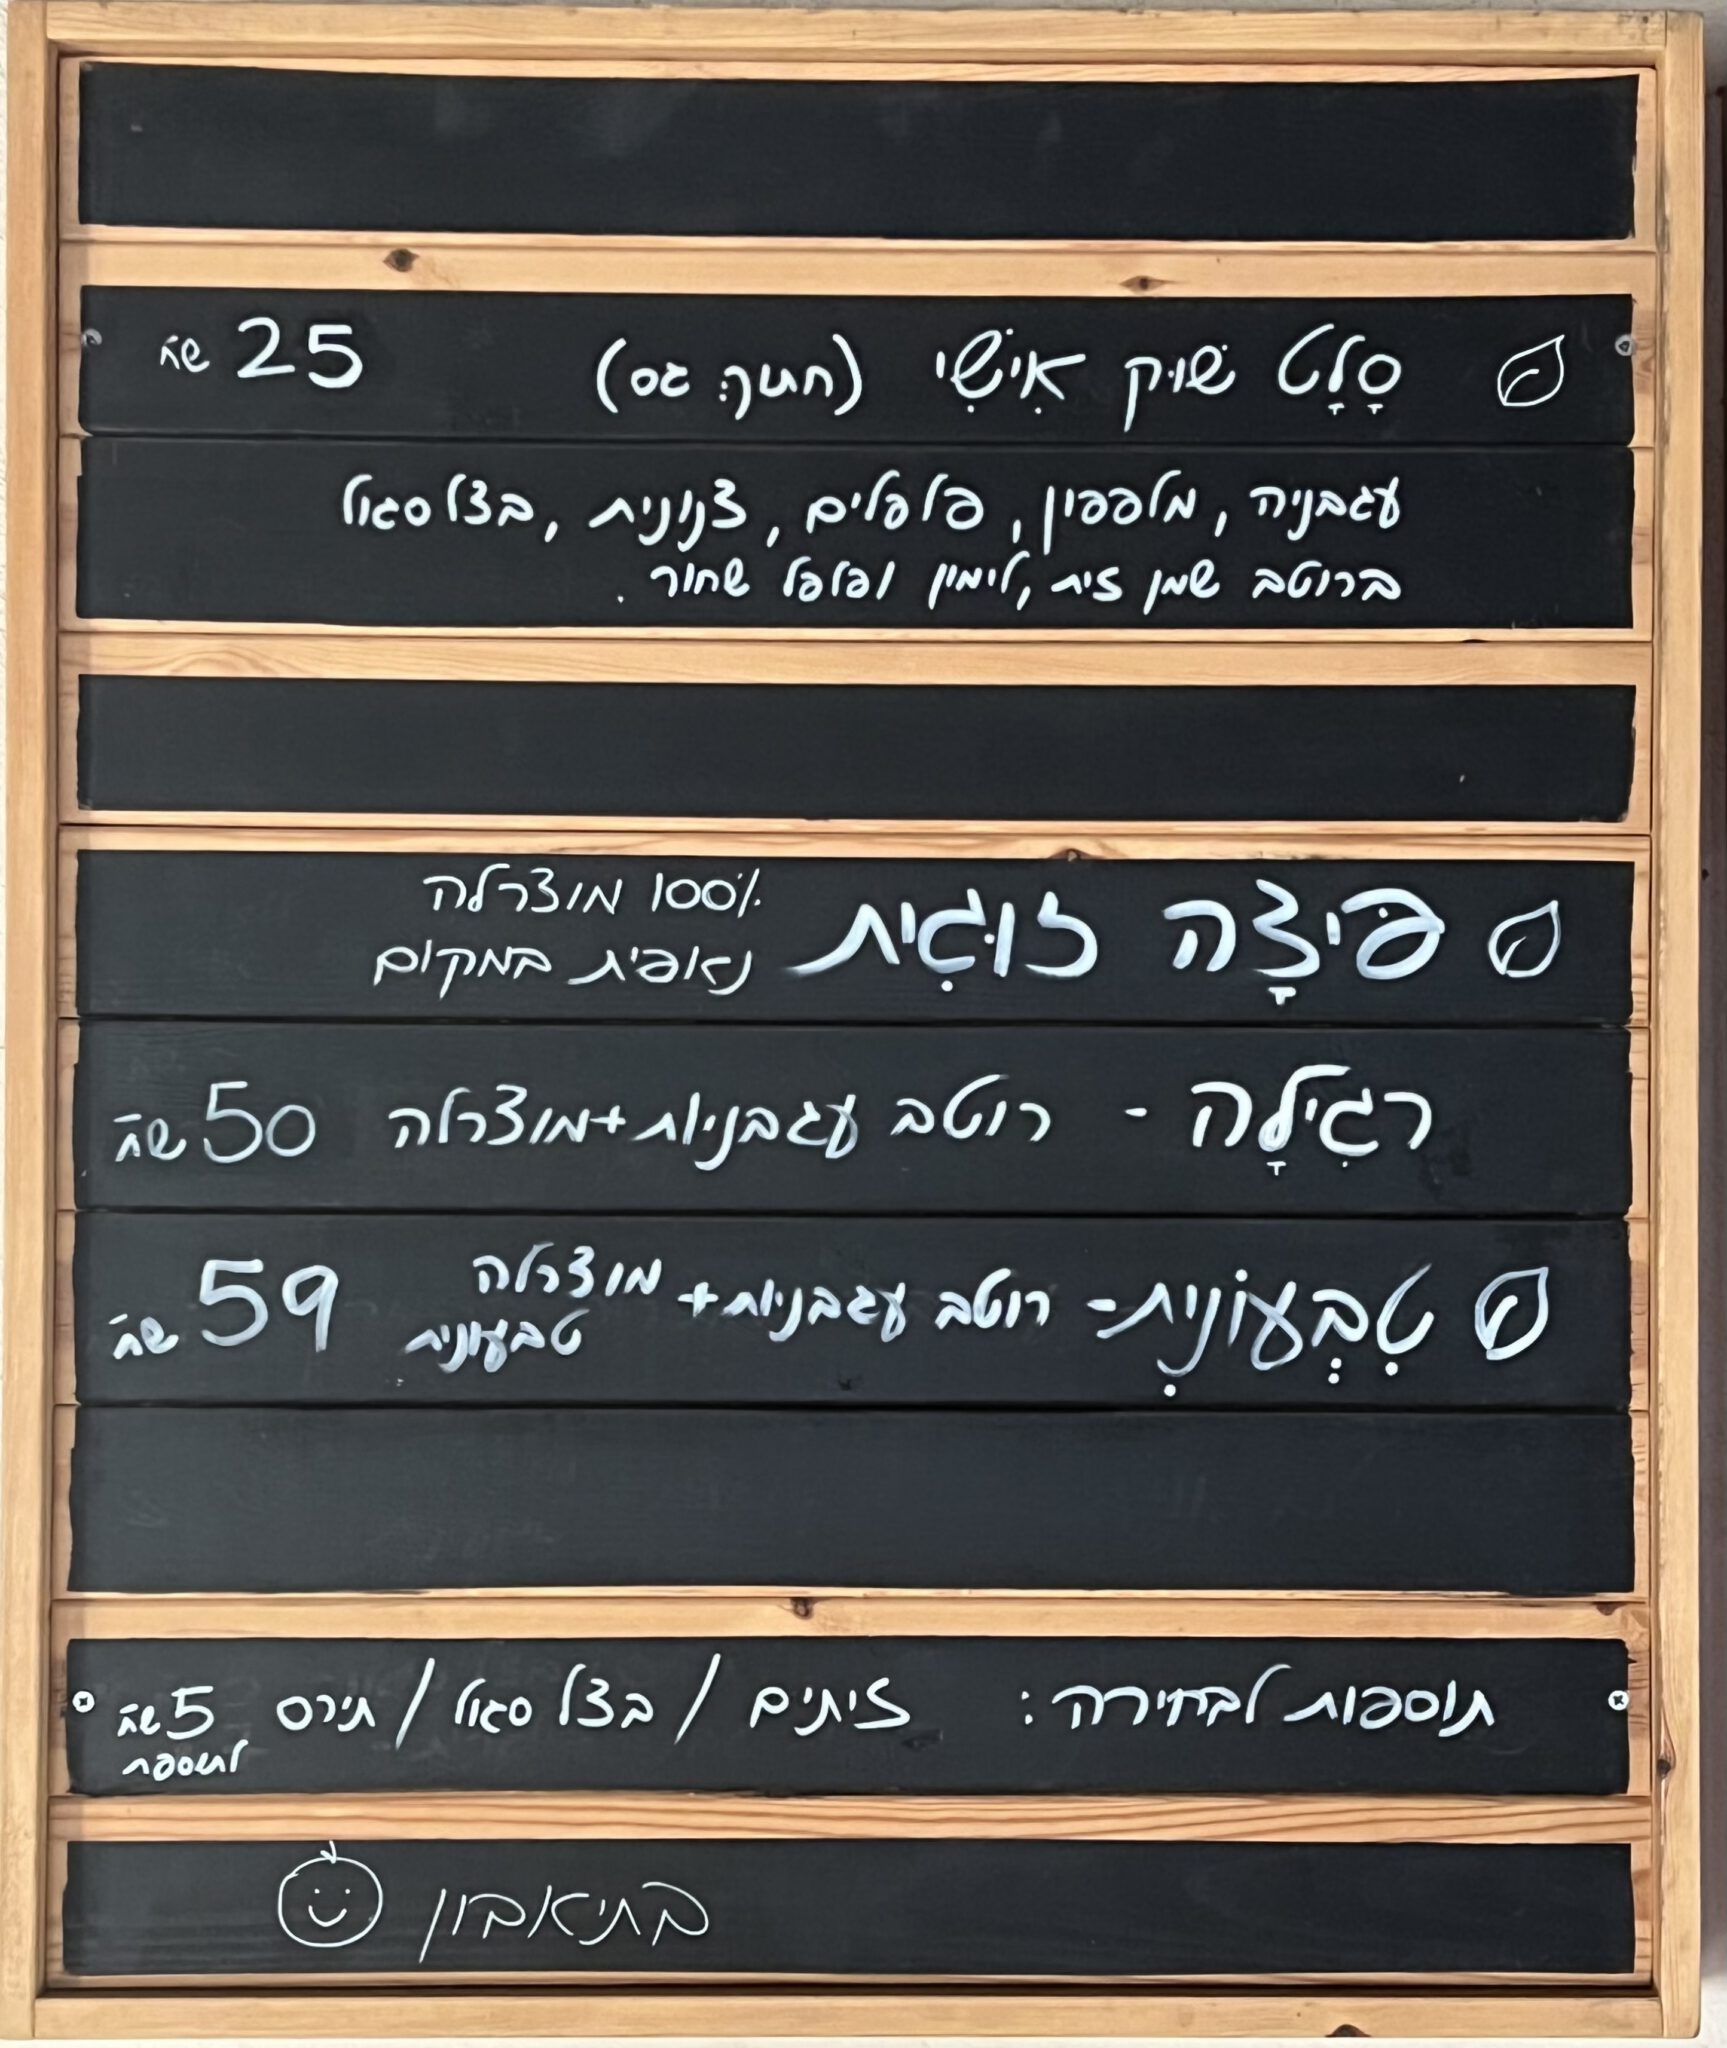 סָלָט שׁוּק אִישִׁי (חתוך גס) 25 שח
עגבניה, מלפפון, פלפלים, צנונית, בצל סגול
ברוטב שמן זית, לימון ופלפל שחור.
פִּיצָה זוּגִית 100% מוצרלה
נאפית במקום
רגִילָה - רוטב עגבניות+מוצרלה 50 שח
טִבְעוֹנִית- רוטב עגבניות+ מוצרלה טבעונית 59 שח
תוספות לבחירה: זיתים / בצל סגול / תירס 5 שח
לתוספת
בתיאבון